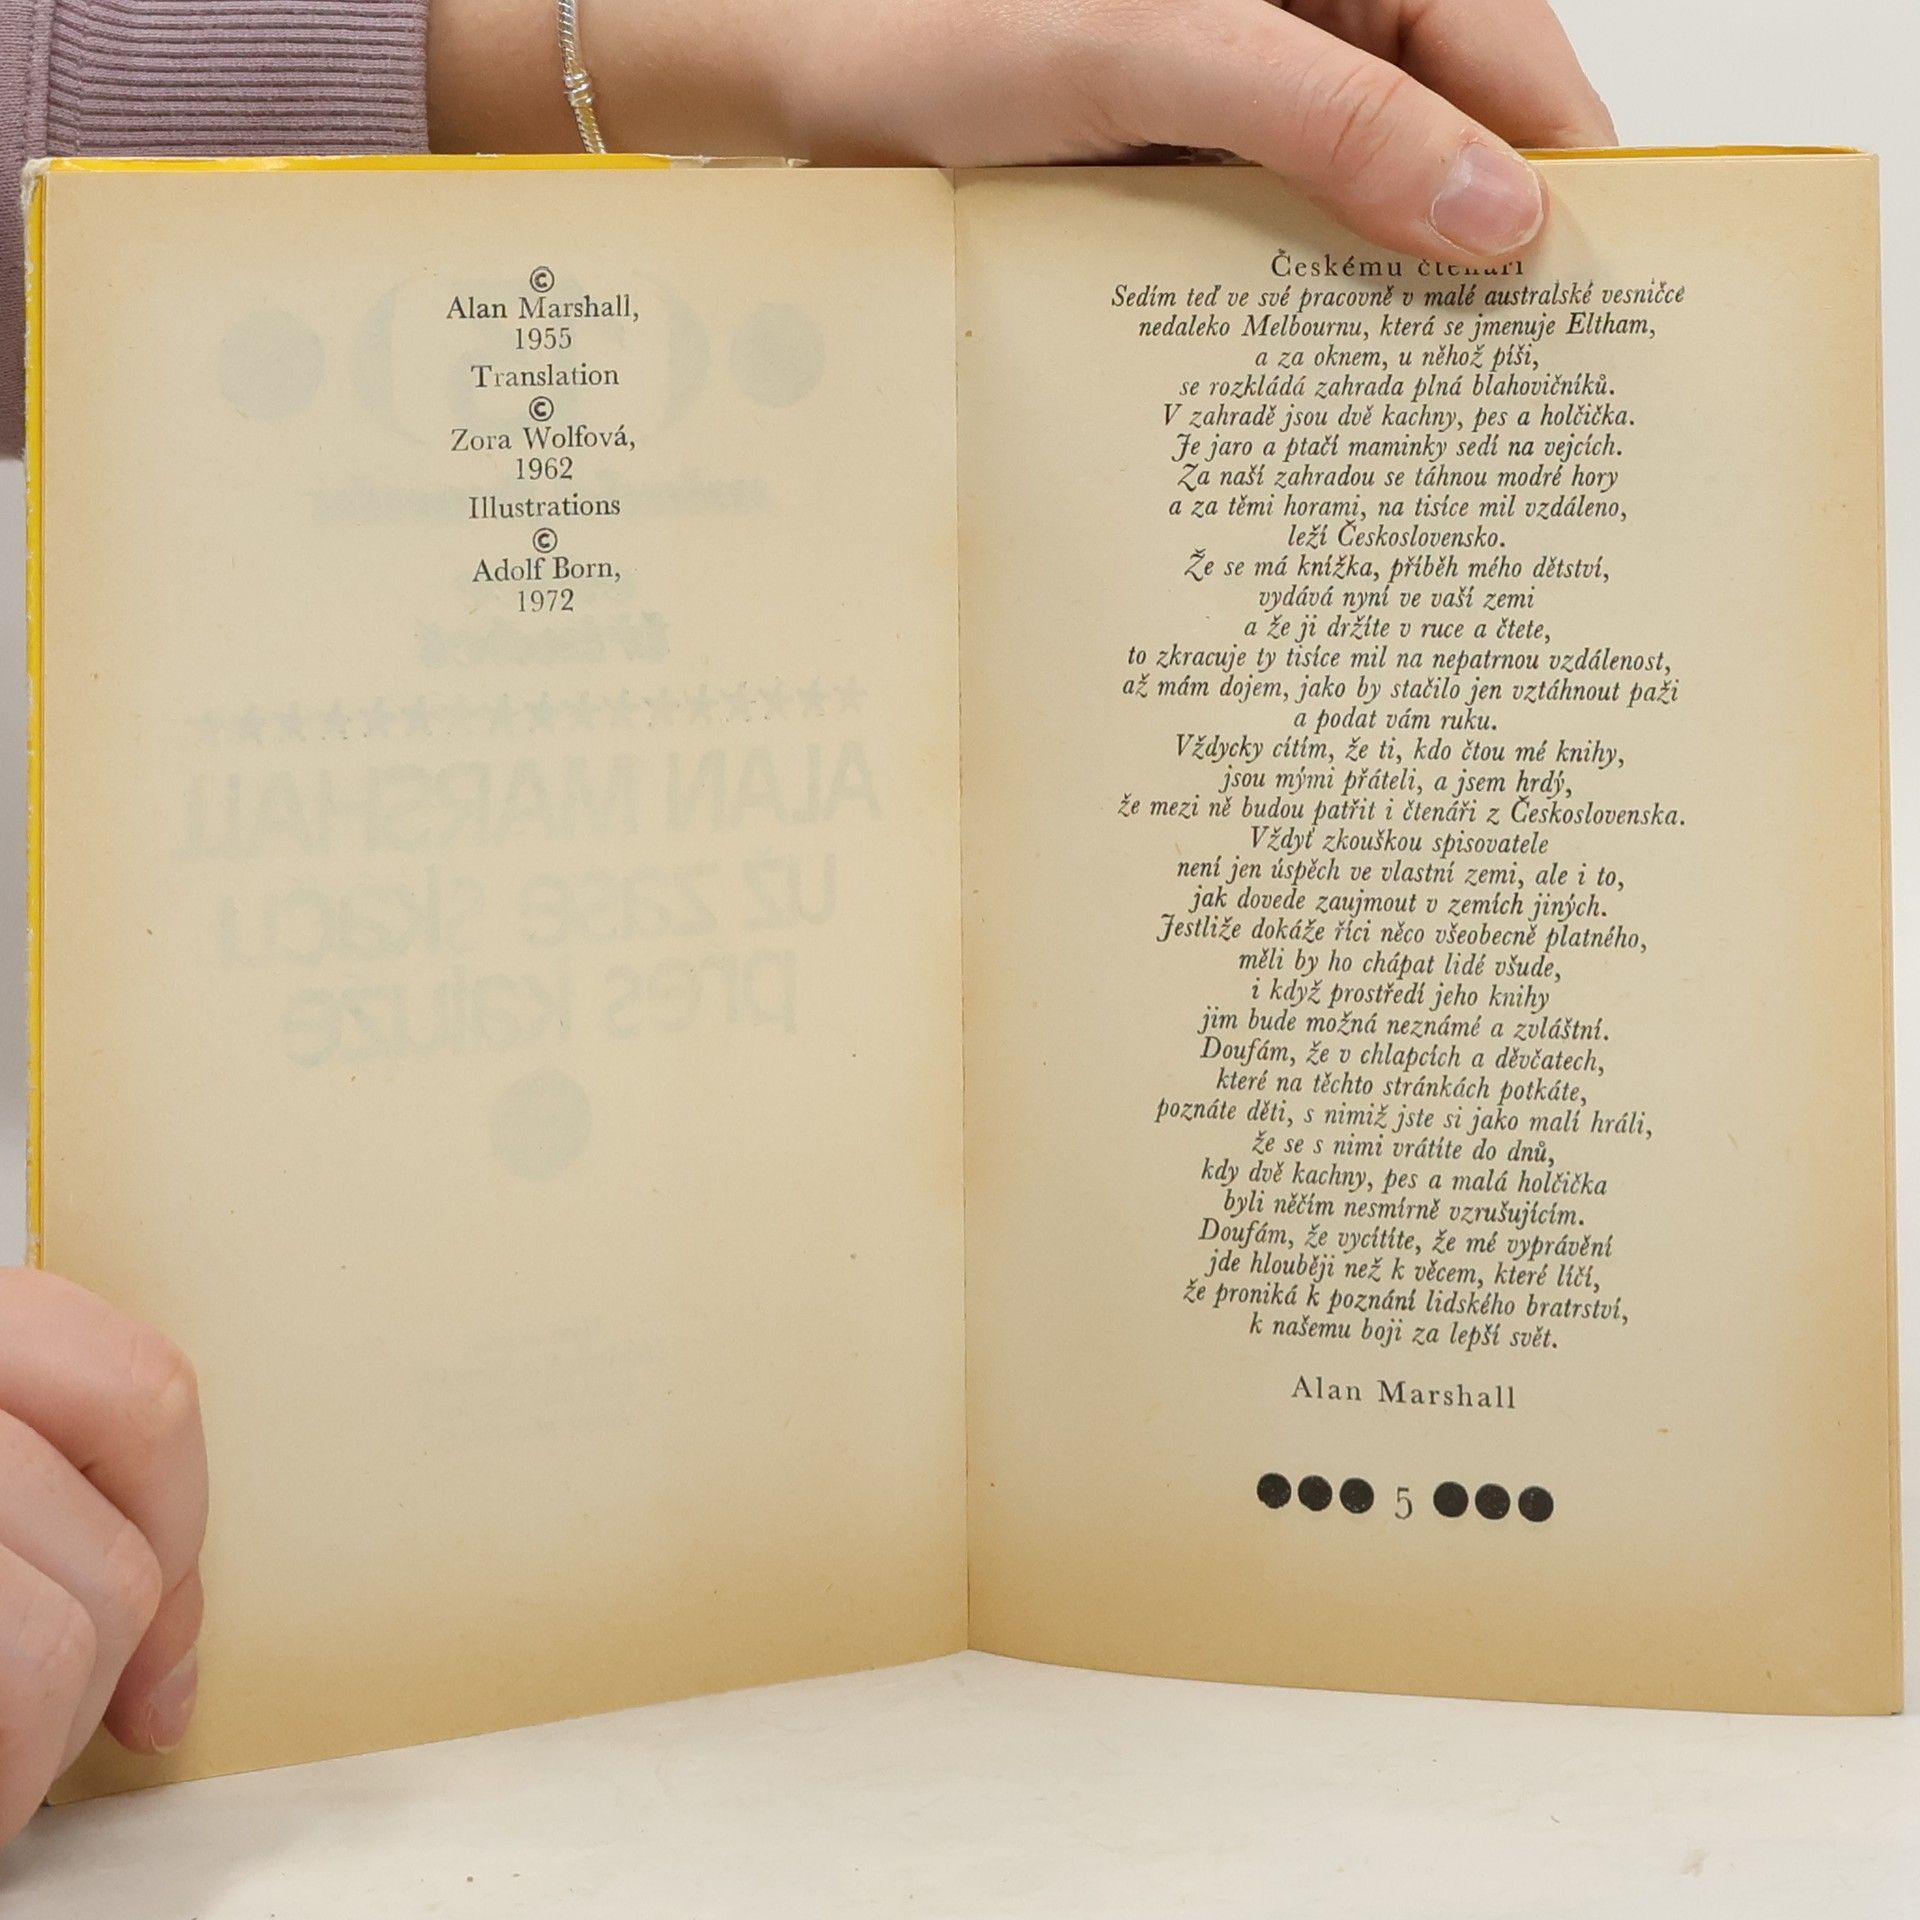 ©
Alan Marshall,
1955
Translation
©
Zora Wolfová,
1962
Illustrations
©
Adolf Born,
1972
Českému čtenáři
Sedím teď ve své pracovně v malé australské vesničce
nedaleko Melbournu, která se jmenuje Eltham,
a za oknem, u něhož píši,
se rozkládá zahrada plná blahovičníků.
V zahradě jsou dvě kachny, pes a holčička.
Je jaro a ptačí maminky sedí na vejcích.
Za naší zahradou se táhnou modré hory
a za těmi horami, na tisíce mil vzdáleno,
leží Československo.
Že se má knížka, příběh mého dětství,
vydává nyní ve vaší zemi
a že ji držíte v ruce a čtete,
to zkracuje ty tisíce mil na nepatrnou vzdálenost,
až mám dojem, jako by stačilo jen vztáhnout paži
a podat vám ruku.
Vždycky cítím, že ti, kdo čtou mé knihy,
jsou mými přáteli, a jsem hrdý,
že mezi ně budou patřit i čtenáři z Československa.
Vždyť zkouškou spisovatele
není jen úspěch ve vlastní zemi, ale i to,
jak dovede zaujmout v zemích jiných.
Jestliže dokáže říci něco všeobecně platného,
měli by ho chápat lidé všude,
i když prostředí jeho knihy
jim bude možná neznámé a zvláštní.
Doufám, že v chlapcích a děvčatech,
které na těchto stránkách potkáte,
poznáte děti, s nimiž jste si jako malí hráli,
že se s nimi vrátíte do dnů,
kdy dvě kachny, pes a malá holčička
byli něčím nesmírně vzrušujícím.
Doufám, že vycítíte, že mé vyprávění
jde hlouběji než k věcem, které líčí,
že proniká k poznání lidského bratrství,
k našemu boji za lepší svět.
Alan Marshall
5